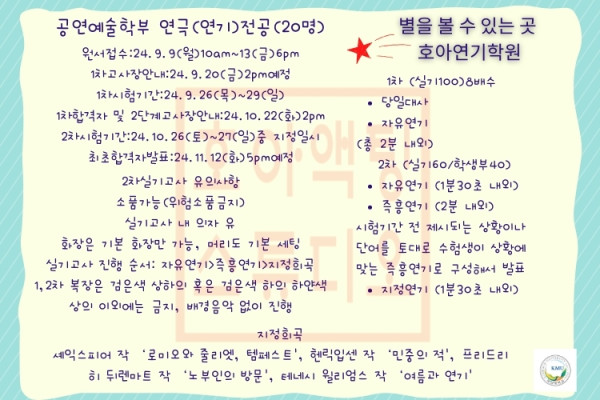 공연예술학부 연극(연기)전공(20명)
원서접수:24. 9. 9(월)10am~13(금)6pm
1차고사장안내:24. 9.20(금)2pm예정
1차시험기간:24. 9.26(목)~29(일)
1차합격자 및 2단계고사장안내:24. 10.22(화)2pm
2차시험기간:24. 10.26(토)~27(일)중 지정일시
최초합격자발표:24. 11.12(화)5pm예정
2차실기고사 유의사항
소품가능(위험소품금지)
실기고사 내 의자 유
화장은 기본 화장만 가능, 머리도 기본 세팅
실기고사 진행 순서: 자유연기>즉흥연기>지정희곡
1,2차 복장은 검은색 상하의 혹은 검은색 하의 하얀색
상의 이외에는 금지, 배경음악 없이 진행
별을 볼 수 있는 곳
호아연기학원
1차 (실기100)8배수
• 당일대사
• 자유연기
(총 2분 내외)
2차 (실기60/학생부40)
• 자유연기 (1분30초 내외)
• 즉흥연기 (2분 내외)
시험기간 전 제시되는 상황이나
단어를 토대로 수험생이 상황에
맞는 즉흥연기로 구성해서 발표
• 지정연기 (1분30초 내외)
지정희곡
셰익스피어 작 ‘로미오와 줄리엣, 템페스트', 헨릭입센 작 ‘민중의 적', 프리드리
히 뒤렌마트 작 ‘노부인의 방문', 테네시 윌리엄스 작 ‘여름과 연기'
호아액팅
스튜디오
KMU